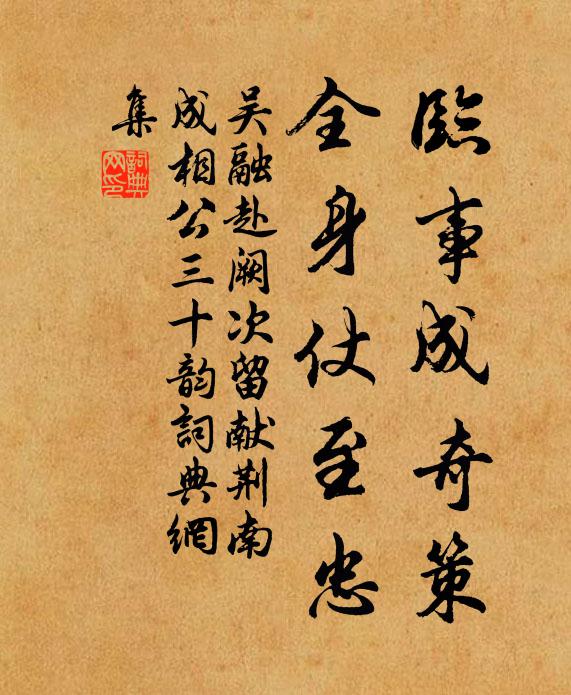 臨事成奇策
全身仗至忠
吴融赴阙次留献荆南
成相公三十韵詞典網
集
詞典
网印